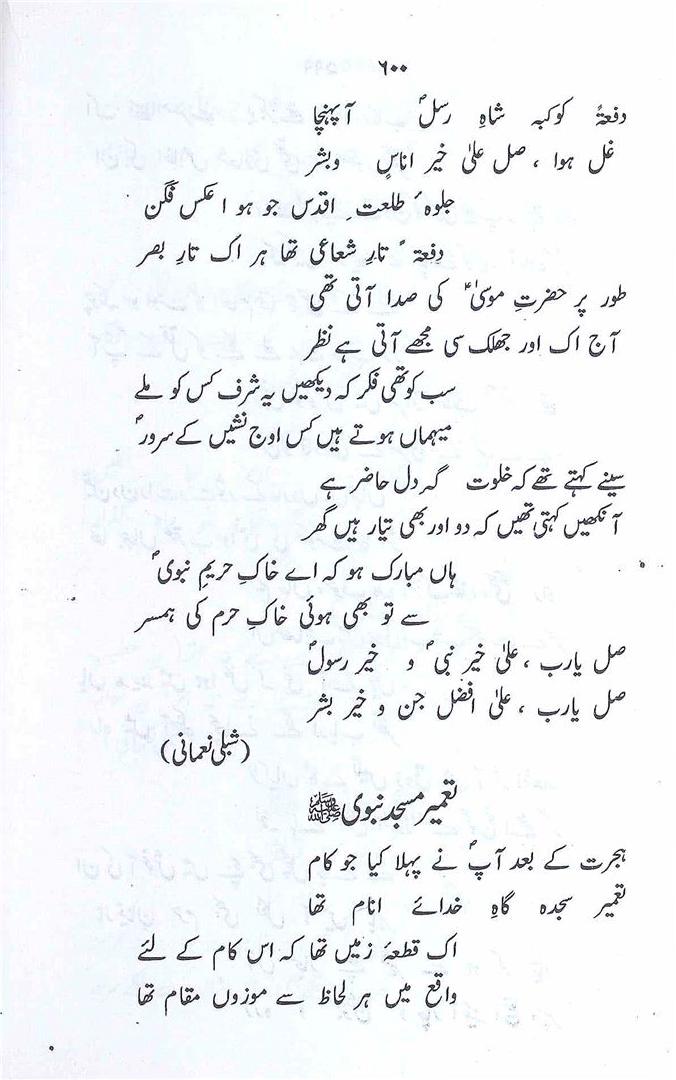 ۶۰۰
دفعۃً کوکبہ شاہِ رسلؐ آ پہنچا
غل ہوا ، صل علیٰ خیر اناسٍ وبشر
جلوہٴ طلعتِ اقدس جو ہوا عکس فگن
دفعۃً تارِ شعاعی تھا ہر اک تارِ بصر
طور پر حضرتِ موسیٰؑ کی صدا آتی تھی
آج اک اور جھلک سی مجھے آتی ہے نظر
سب کو تھی فکر کہ دیکھیں یہ شرف کس کو ملے
میہماں ہوتے ہیں کس اوج نشیں کے سرورؐ
سینے کہتے تھے کہ خلوت گہ دل حاضر ہے
آنکھیں کہتی تھیں کہ دو اور بھی تیار ہیں گھر
ہاں مبارک ہو کہ اے خاکِ حریمِ نبویؐ
سے تو بھی ہوئی خاکِ حرم کی ہمسر
صل یارب ، علیٰ خیر نبیؐ و خیر رسولؐ
صل یارب ، علیٰ افضل جن و خیر بشر
(شبلی نعمانی)
تعمیر مسجد نبوی ﷺ
ہجرت کے بعد آپؐ نے پہلا کیا جو کام
تعمیر سجدہ گاہِ خدائے انام تھا
اک قطعۂ زمیں تھا کہ اس کام کے لئے
واقع میں ہر لحاظ سے موزوں مقام تھا